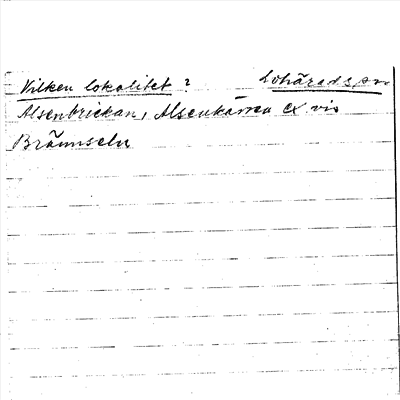 Vilken lokalitet? Lohärads sn
Alsenbrickan, Alsenkarna ex vis
Bräunseln